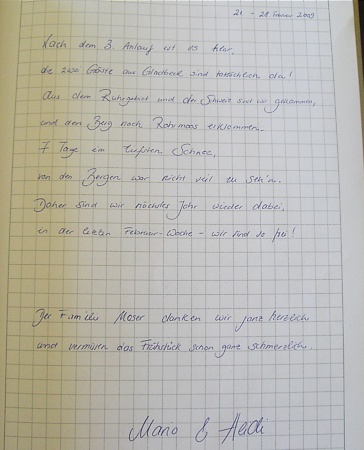 21. - 28. Februar 2009
Nach dem 3. Anlauf ist es klar,
die zwei Gäste aus Gladbeck sind tatsächlich da!
Aus dem Ruhrgebiet und der Schweiz sind wir gekommen,
und den Berg nach Rohrmoos erklommen.
7 Tage im tiefsten Schnee,
von den Bergen war nicht viel zu seh'n.
Daher sind wir nächstes Jahr wieder dabei,
in der letzten Februar-Woche - wir sind so frei!
Der Familie Moser danken wir ganz herzlich
und vermissen das Frühstück schon ganz schmerzlich.
& Heidi